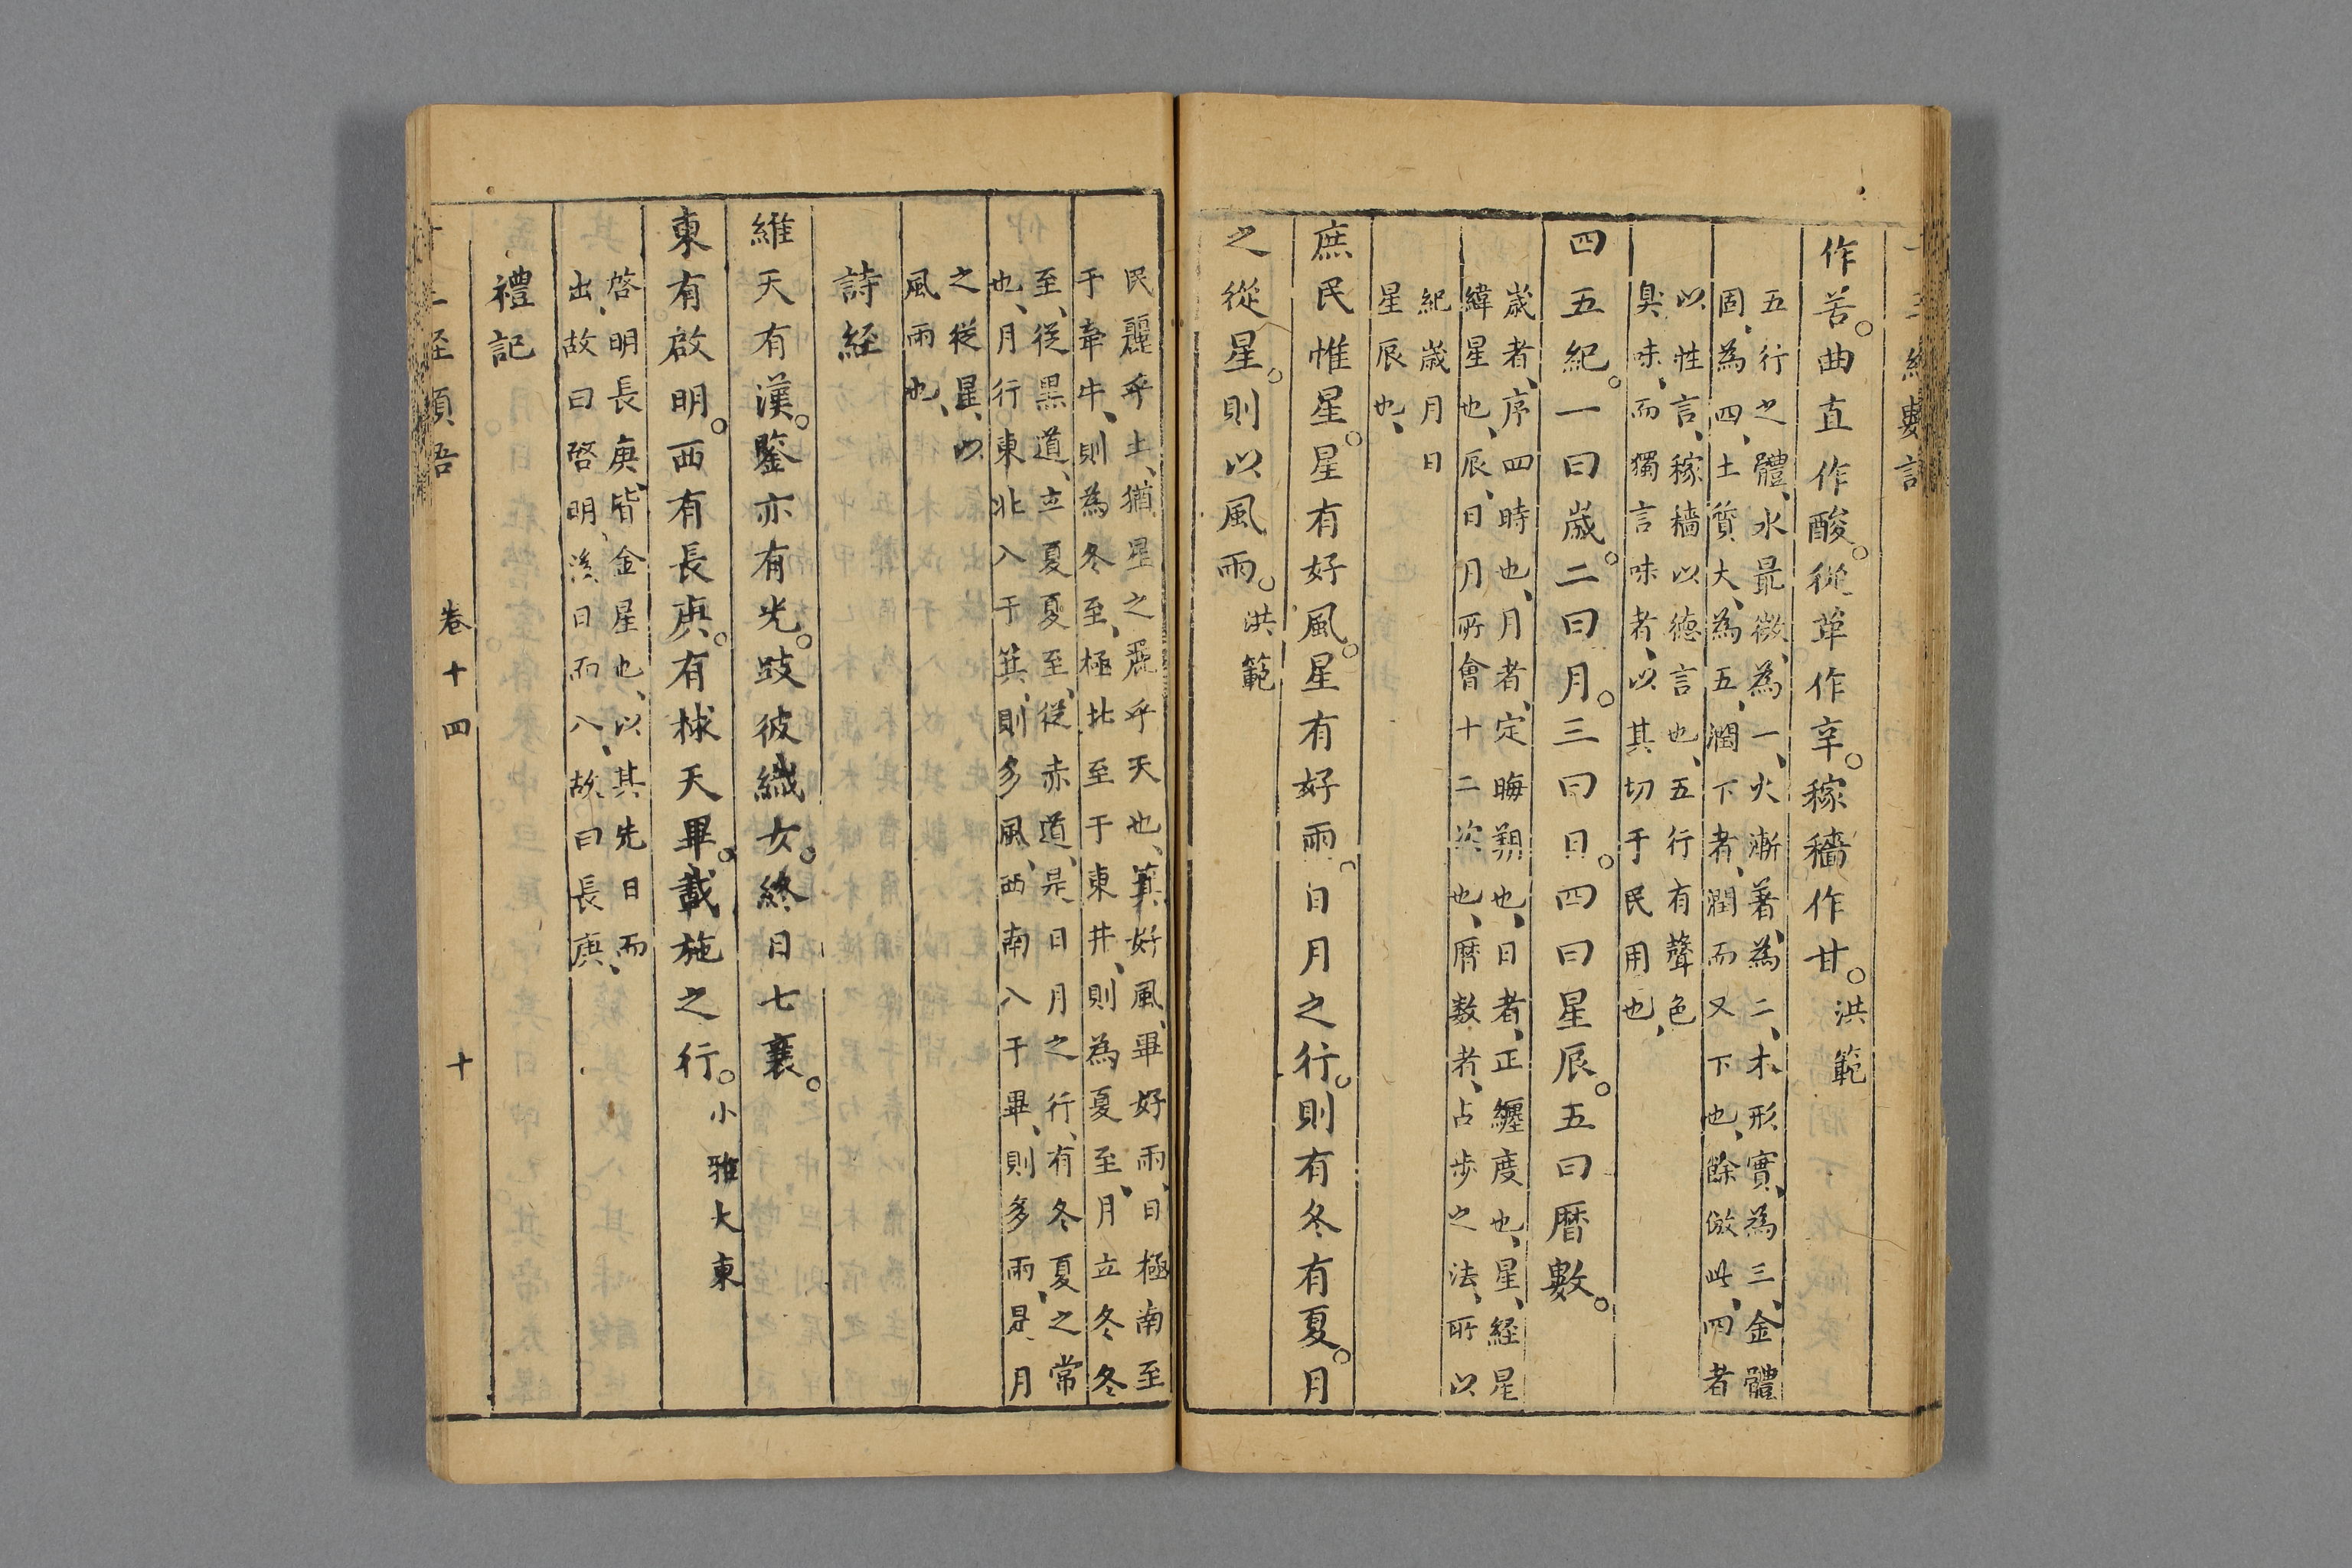 作苦。曲直作酸。從革作辛。稼穡作甘。洪範
五行之體、水最微、為一、火漸著、為二、木形實、為三、金體
固、為四、土質大、為五、潤下者、潤而又下也、餘倣此、四者
以性言、稼穡以德言也、五行有聲色
臭味、而獨言味者、以其切于民用也、
四五紀。一曰歲。二曰月。三曰日。四曰星辰。五曰曆數。
歲者、序四時也、月者、定晦朔也、日者、正纏度也、星、経星
緯星也、辰、日月所會十二次也、曆数者、占步之法、所以
紀歲月日
星辰也、
庶民惟星。星有好風。星有好雨。日月之行。則有冬有夏。月
之從星。則以風雨。洪範
民麗乎土、猶星之麗乎天也、箕好風、畢好雨、日極南至
于牽牛、則為冬至、極北至于東井、則為夏至、月立冬冬
至、從黑道、立夏夏至、從赤道、是日月之行、有冬夏之常
也、月行東北入于箕、則多風、西南入于畢、則多雨、是月
之從星、以
風雨也、
詩経
維天有漢。鑒亦有光。跂彼織女。終日七襄。
東有啟明。西有長庚。有捄天畢。載施之行。小雅大東
啓明長庚、皆金星也、以其先日而
出、故曰啓明、後日而入、故曰長庚、
禮記
卷十四
十